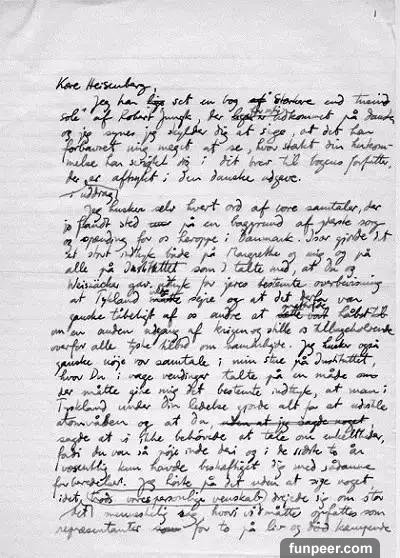 1
Kære Heisenberg,
Jeg har lige set en bog af "Stærkere end tusind
sole" af Robert Jungk, der lige er udkommet på dansk
og jeg synes jeg skylder dig at sige, at det har
forbavset mig meget at se, hvor stærkt din hukom-
melse har svigtet dig i dit brev til bogens forfatter,
der er aftrykt i den danske udgave.
i uddrag
Jeg husker selv hvert ord af vore samtaler, der
jo fandt sted på en baggrund af yderste sorg
og spænding for os heroppe i Danmark. Især gjorde det
et stort indtryk både på Margrethe og mig og på
alle på Instituttet som I talte med, at Du og
Weizsäcker gav udtryk for jeres bestemte overbevisning
at Tyskland måtte sejre og at det derfor var
ganske tåbeligt af os andre at håb
om en anden udgang af krigen og stille os tilbageholdende
overfor alle tyske tilbud om samarbejde. Jeg husker også
ganske nøje vor samtale i min stue på Instituttet,
hvor Du i vage vendinger talte på en måde som
der måtte give mig det bestemte indtryk, at man i
Tyskland under Din ledelse gjorde alt for at udvikle
atomvåben og at Du, uden at jeg sagde noget
sagde at vi ikke behøvede at tale om enkeltheder,
fordi du var så nøje inde deri og i de sidste to år
væsentlig kun havde beskæftiget dig med sådanne
forberedelser. Jeg hørte på det uden at sige noget
idet, trods vores personlige venskab, drejede sig om stor
det menneskelig sag, hvori vi måtte opfattes som
repræsentanter for to på liv og død kæmpende
funpeer.com